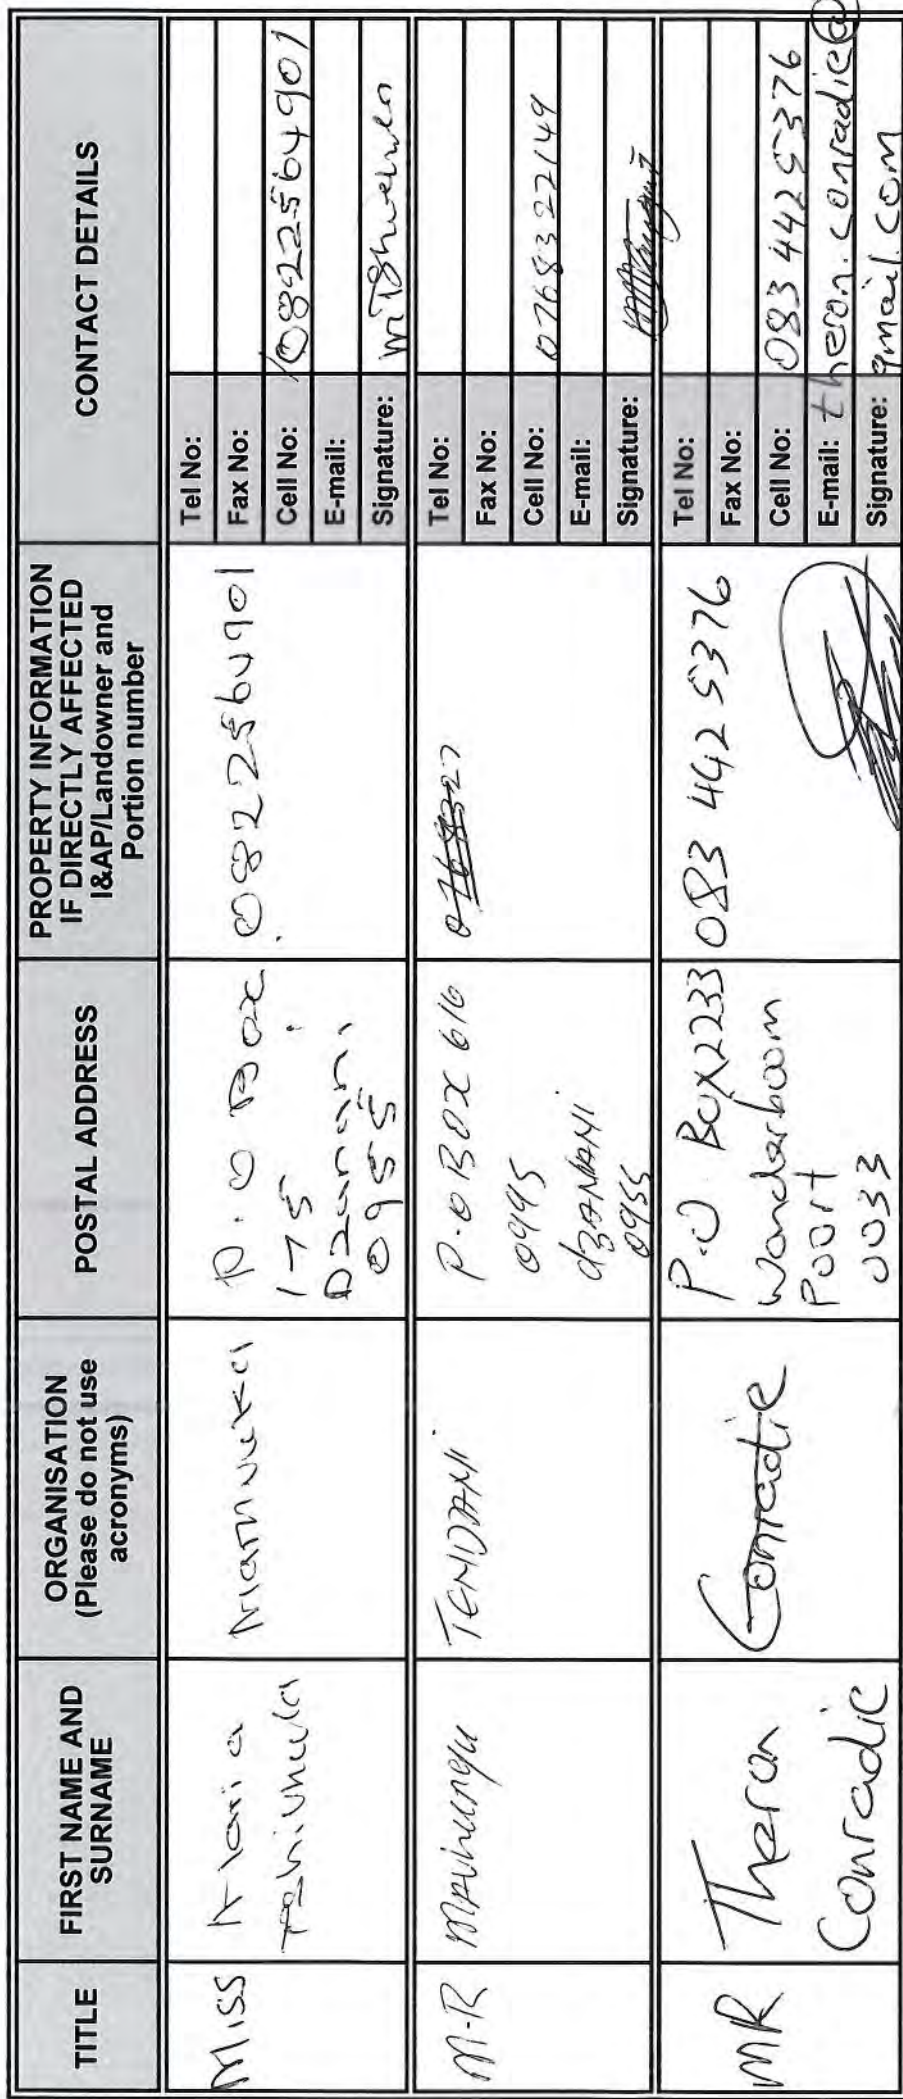 TITLE
FIRST NAME AND
SURNAME
ORGANISATION
(Please do not use
acronyms)
POSTAL ADDRESS
PROPERTY INFORMATION
IF DIRECTLY AFFECTED
I&AP/Landowner and
Portion number
CONTACT DETAILS
Miss
P.O Box
175
Dzanani
0955
0822564901
Tel No:
Fax No:
Cell No: 0822564901
E-mail:
Signature:
M.R
TENDANI
P.O BOX 616
dzANANI
0955
Tel No:
Fax No:
Cell No: 0768322149
E-mail:
Signature:
MR
Theron
Conradie
Conradie
P.O Box 2233
Wonderboom
Poort
0033
083 442 5376
Tel No:
Fax No:
Cell No: 083 442 5376
E-mail: theron.conradie@
gmail.com
Signature: